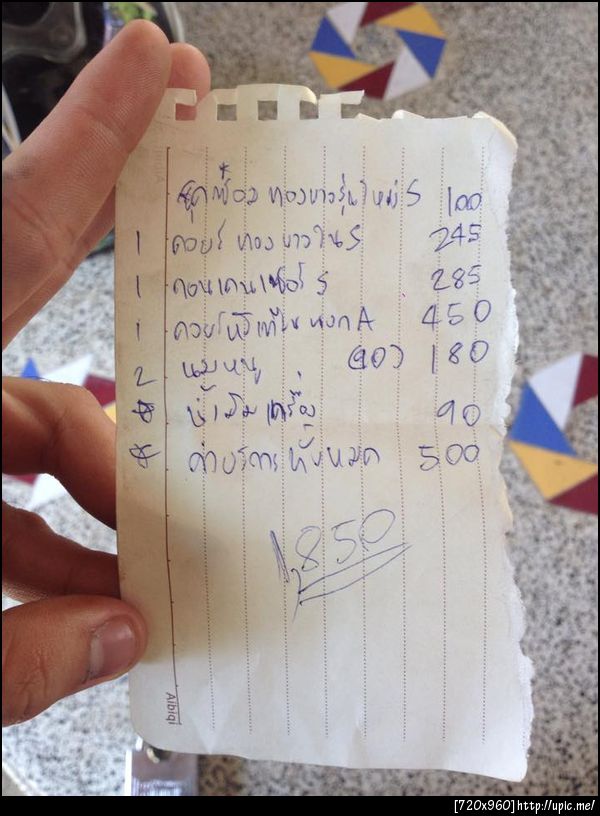 ชุดซ่อม ทองขาวรุ่นใหม่ S 100
1 คอยล์ ทองขาวใน S 245
1 คอนเดนเซอร์ S 285
1 คอยล์ นอก A 450
2 นมหนู (90) 180
* น้ำมันเครื่อง 90
* ค่าบริการทั้งหมด 500
1,850
Aibiqi
[720x960]http://upic.me/